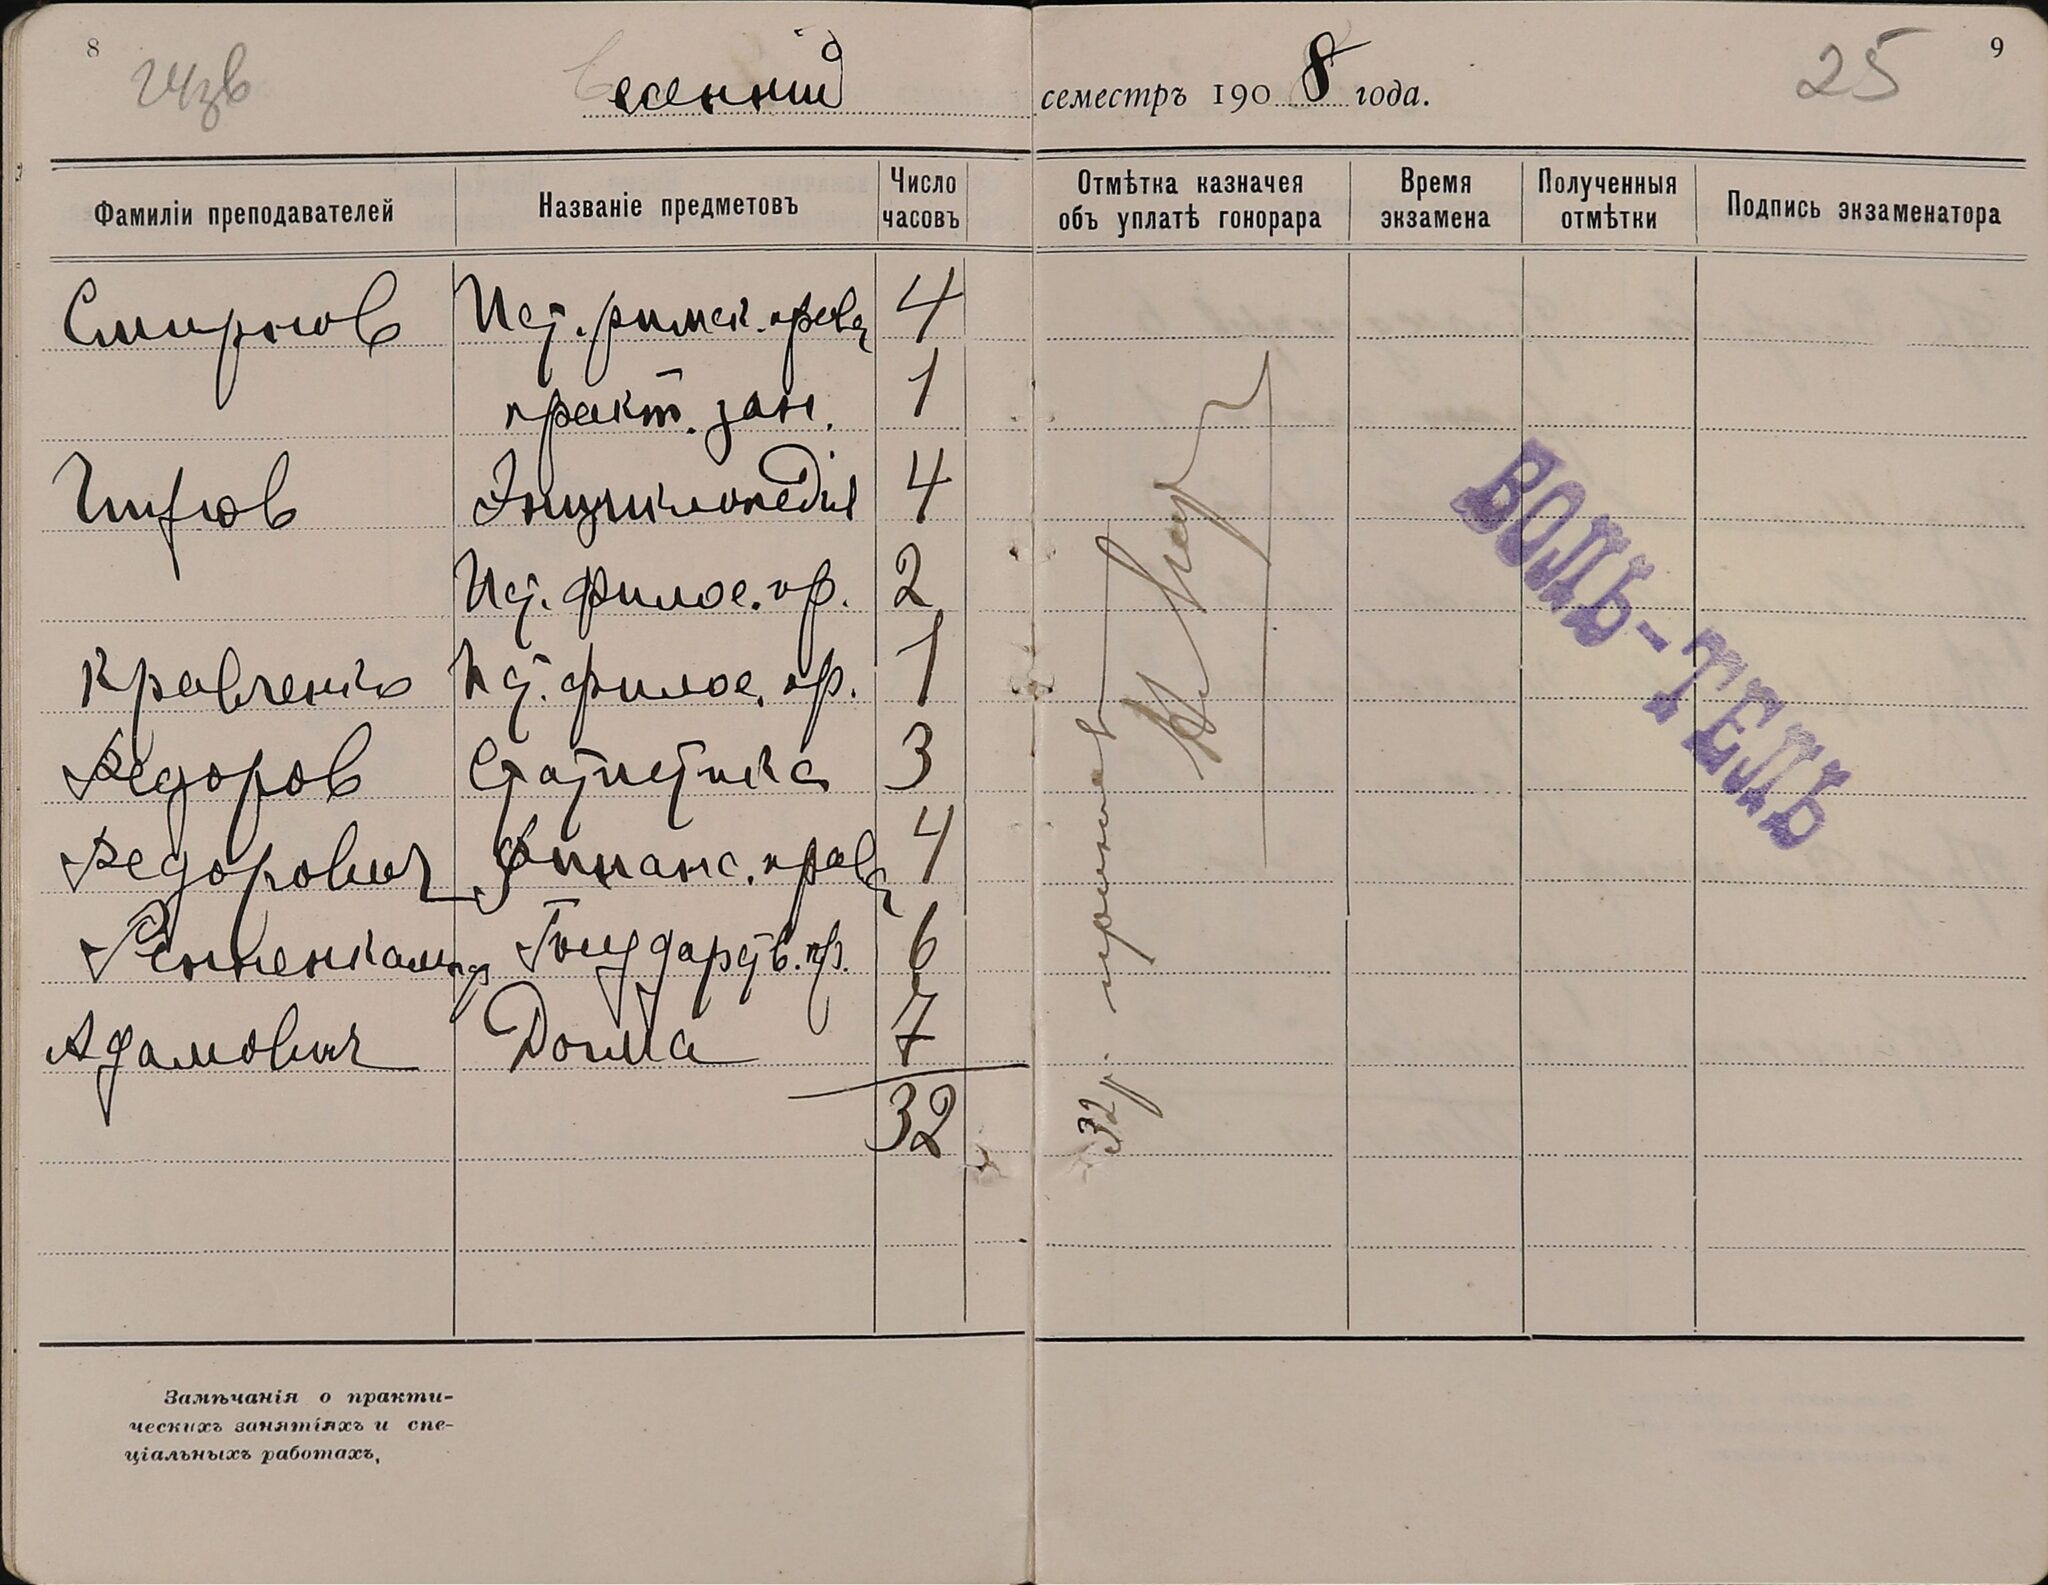 8
весенній семестръ 1908 года.
25
9
Фамиліи преподавателей Названіе предметовъ Число часовъ Отмѣтка казначея объ уплатѣ гонорара Время экзамена Полученныя отмѣтки Подпись экзаменатора
Смирнов Ист. римск. права 4
практ. зан. 1
Энциклопедія 4
Ист. филос. пр. 2
Кравченко Ист. филос. пр. 1
Федоров Статистика 3
Федорович Финанс. права 4
Ренненкампф Государств. пр. 6
Адамович Догма 7
32
32 р. принял
ВОЛЬ-ТЕЛЬ
Замѣчанія о практи-
ческихъ занятіяхъ и спе-
ціальныхъ работахъ,